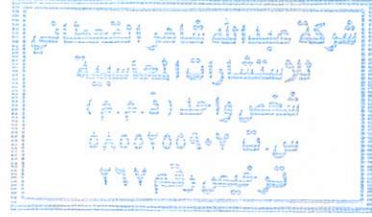 شركة عبدالله شاهر القحطاني
للاستشارات المحاسبية
شخص واحد (ذ.م.م)
س.ت ٥٨٥٥٢٥٥٩٠٧
ترخيص رقم ٢٩٧